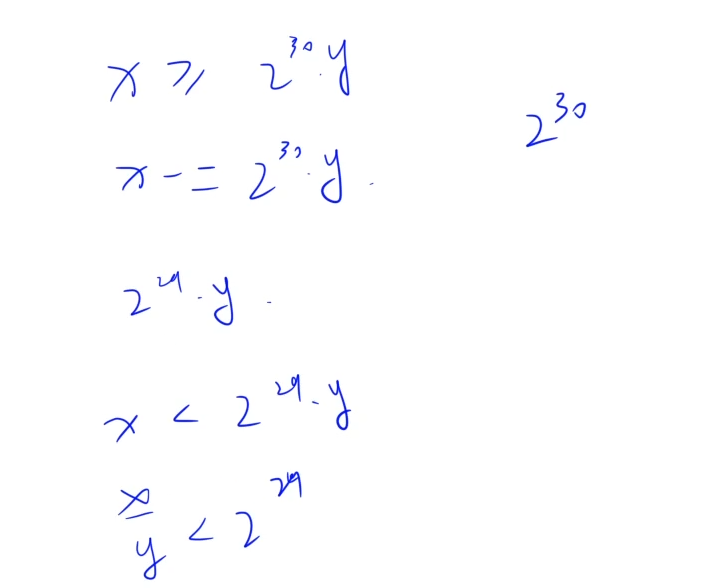 x ⩾ 2^30 · y
2^30
x -= 2^30 · y .
2^29 · y .
x < 2^29 · y
x/y < 2^29